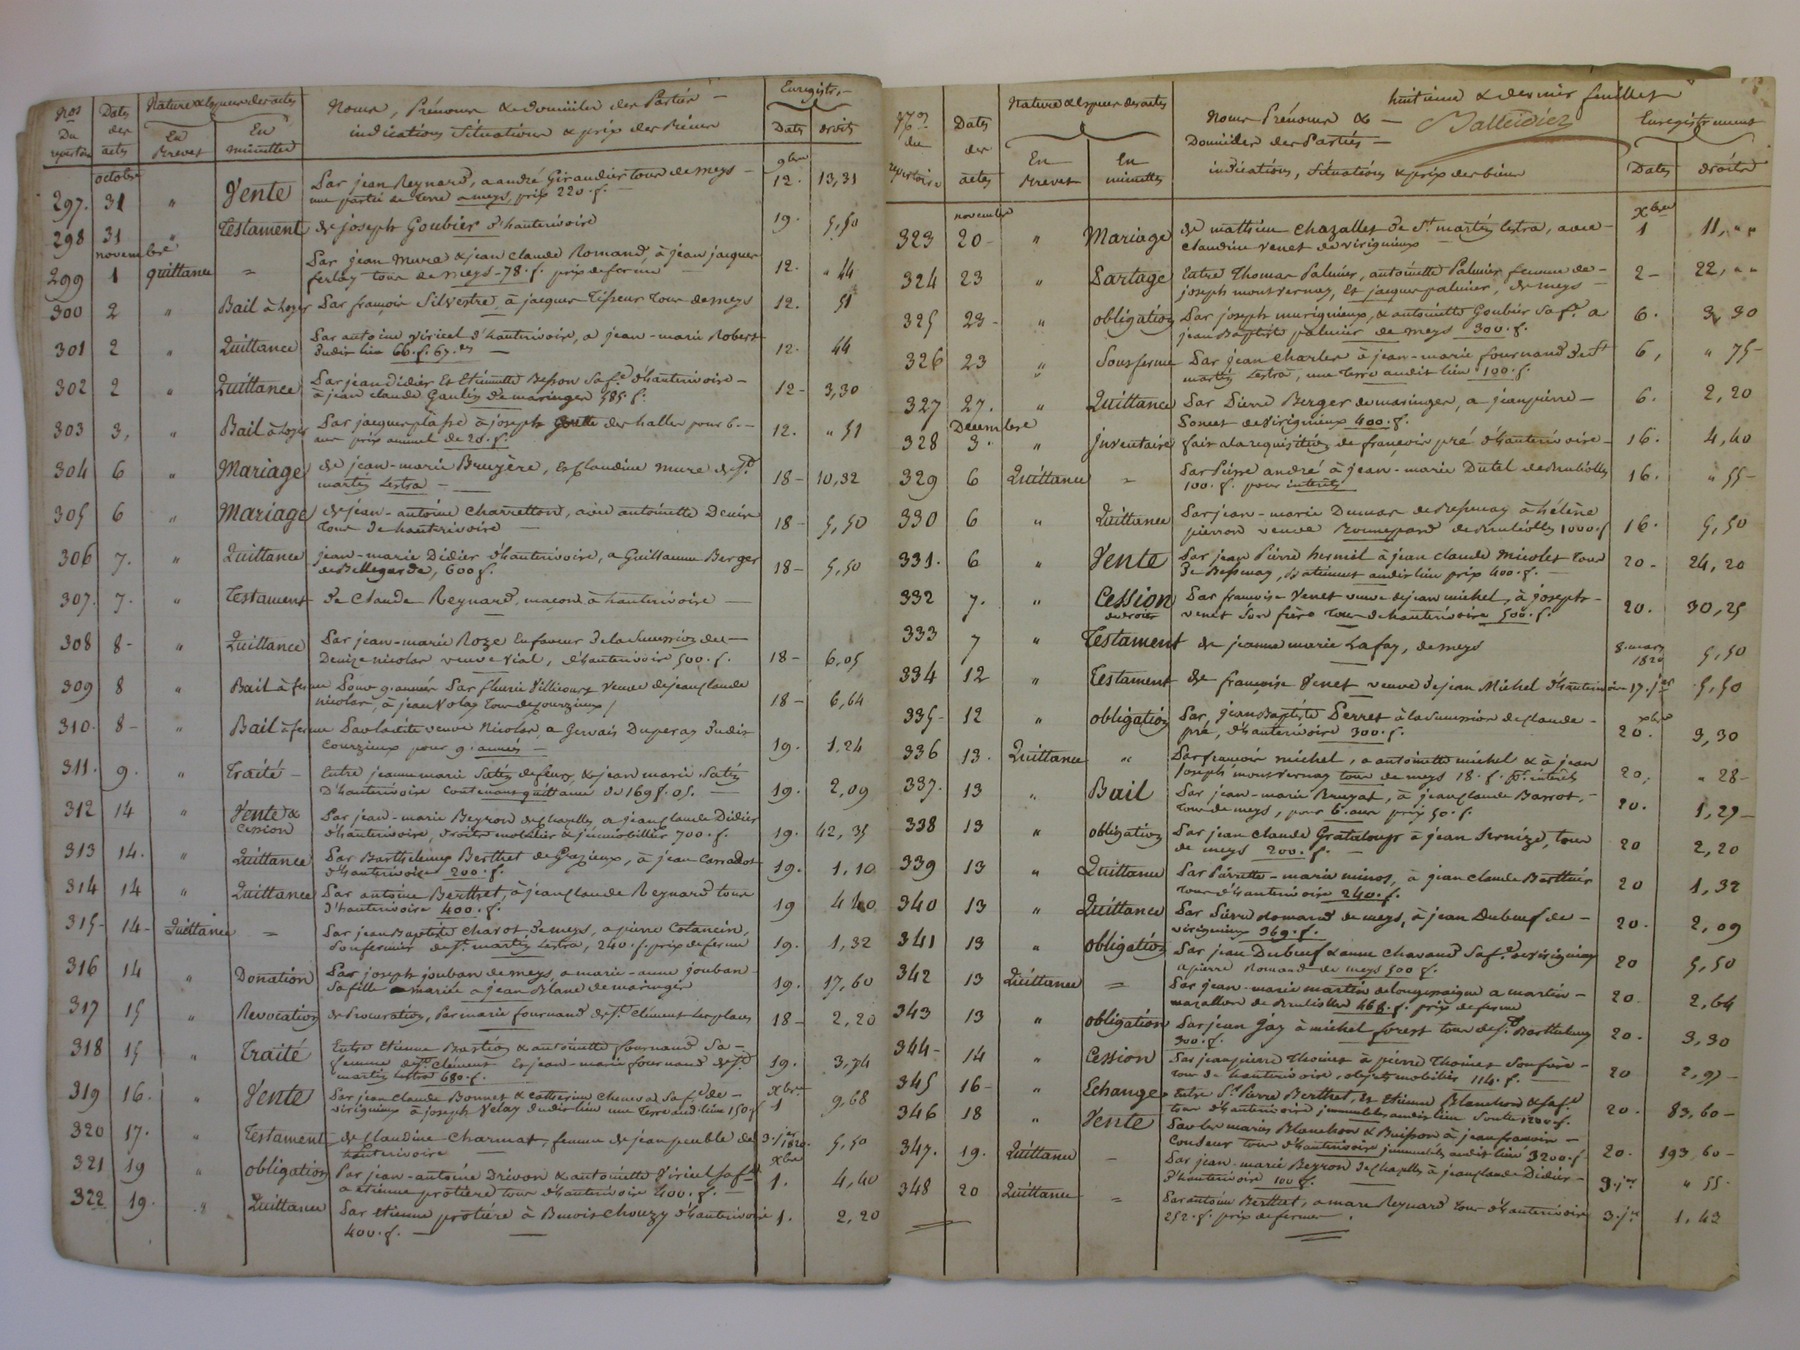 Nos Du repertoire
Dates des actes
Nature & espece des actes
En Brevet
En minuttes
Noms, Prénoms & domiciles des Parties
indications Situations & prix des Biens
Enregistr.
Dates droits
octobre 9bre
297. 31 " Vente Par jean Reynard, a andré Giraudier tous de meys
une partie de terre a meys, prix 220. f. 12. 13,31
298 31 " Testament de joseph Goubier d'hauterivoire 19. 5,50
novembre
299 1 quittance = Par jean Mure & jean Claude Romand, à jean jacques
ferlay tous de meys 78. f. prix de ferme 12. " 44
300 2 " Bail à Loyer Par françois Silvestre, à jacques Tisseur tous de meys 12. 51
301 2 " Quittance Par antoine Viricel d'hauterivoire, a jean-marie Robert
dudit lieu 66. f. 67. 12. 44
302 2 " Quittance Par jean Didier Et Etiennette Besson Sa fe. d'hauterivoire
à jean claude Gaulin de maringes 585 f. 12 - 3,30
303 3, " Bail à Loyer Par jacques plasse à joseph Goutte des halles pour 6.
ans prix annuel de 20. f. 12. " 51
304 6 " Mariage de jean-marie Bruyère, Et Claudine mure de St.
martin Lestra 18 - 10,32
305 6 " Mariage de jean-antoine Charretton, avec antoinette Denis
tous de hauterivoire 18 - 5,50
306 7. " Quittance jean-marie Didier d'hauterivoire, a Guillaume Berger
de Bellegarde, 600 f. 18 - 5,50
307. 7. " Testament de Claude Reynard, maçon à hauterivoire
308 8 - " Quittance Par jean-marie Roze En faveur de la Succession de
Denize nicolas veuve Vial, d'hauterivoire 500. f. 18 - 6,05
309 8 " Bail à ferme Pour 9. années Par fleurie Villicourt Veuve de jean Claude
nicolas, à jean Volay tous de courzieux 18 - 6,64
310. 8 - " Bail à ferme Par ladite veuve Nicolas, a Gervais Duperay dudit
Courzieux pour 9. années 19. 1,24
311. 9. " Traité Entre jeanne marie Satin de fleury, & jean marie Satin
D'hauterivoire Contenant quittance de 169 f. 05. 19. 2,09
312 14 " Vente & Cession Par jean-marie Beyron de chazelles a jean Claude Didier
d'hauterivoire, droits mobilier & jmmobillier 700. f. 19. 42,35
313 14. " Quittance Par Barthélémy Berthet de Grezieux, à jean Carradot
d'hauterivoire 200. f. 19. 1,10
314 14 " Quittance Par antoine Berthet, à jean Claude Reynard tous
d'hauterivoire 400. f. 19 4 40
315 - 14 - Quittance = Par jean Baptiste Charot de meys, a pierre Cotancin,
Son fermier de St. martin Lestra, 240. f. prix de ferme 19. 1,32
316 14 " Donation Par joseph jouban de meys, a marie-anne jouban
Sa fille mariée a jean Blanc de maringes 19. 17,60
317 15 " Revocation de Procuration, Par marie fournand de St. Clément Les places 18 - 2,20
318 15 " Traité Entre Etienne Bastion & antoinette fournand Sa
femme de St. Clément Et jean-marie fournand de St.
martin Lestra 680. f. 19. 3,74
Xbre
319 16. " Vente Par jean Claude Bonnet & Catherine Chenevas Sa fe. de
virigneux à joseph Velay dudit lieu une Terre aud. lieu 150 f. 1 9,68
320 17. " Testament de Claudine Charmat, femme de jean peuble de
hauterivoire 3. jer 1820. 5,50
Xbre
321 19 " obligation Par jean-antoine Drivon & antoinette Viricel Sa fe.
a etienne protière tous d'hauterivoire 400. f. 1. 4,40
322 19. " Quittance Par etienne protière à Benoit Chouzy d'hauterivoire
400. f. 1. 2,20
huitieme & dernier feuillet
Nos du repertoire
Dates des actes
Nature & espece des actes
En Brevet
En minuttes
Noms Prénoms &
Domiciles des Parties
indications, Situations & prix des biens
Enregistrement
Dates droits
novembre Xbre
323 20 - " Mariage de mathieu chazalles de St. martin Lestra, avec
Claudine Venet de virigneux 1 11, " "
324 23 " Partage Entre Thomas Palmier, antoinette Palmier femme de
joseph montvernay, Et jacques palmier, de meys 2 - 22, " "
325 23 - " obligation Par joseph murigneux, & antoinette Goubier Sa fe. a
jean Baptiste palmier de meys 300. f. 6. 3,30
326 23 " Sousferme Par jean Charles à jean-marie fournand de St
martin Lestra, une Terre audit lieu 100. f. 6, " 75 -
327 27. " Quittance Par Pierre Berger de maringes, a jean pierre
Poncet de Virigneux 400. f. 6. 2,20
Decembre
328 3. " jnventaire fait a la requisition de françois pré d'hauterivoire 16. 4,40
329 6 Quittance = Par Pierre andré à jean-marie Dutel de Brulliolles
100. f. pour interets 16. " 55 -
330 6 " Quittance Par jean-marie Dumas de Bessenay à hélène
pierron veuve de Brulliolles 1000. f 16. 5,50
331. 6 " Vente Par jean Pierre hermil à jean claude Micolet tous
de Bessenay, Batiment audit lieu prix 400. f. 20 - 24,20
332 7. " Cession de droits Par françoise Venet veuve de jean michel, à joseph
venet Son frère tous d'hauterivoire 500. f. 20. 30,25
333 7 " Testament de jeanne marie Lafay, de meys 8. mars 1820 5,50
334 12 " Testament de françoise Venet veuve de jean Michel d'hauterivoire 17. jer 5,50
335 - 12 " obligation Par jean Baptiste Perret à la Succession de Claude
pré, d'hauterivoire 300. f. xbre 20. 3,30
336 13. Quittance " Par françois michel, a antoinette michel & à jean
joseph montvernay tous de meys 18. f. pr. interets 20, " 28 -
337. 13 " Bail Par jean-marie Bruyat, à jean Claude Barrot,
tous de meys, pour 6. ans prix 50. f. 20. 1,29 -
338 13 " obligation Par jean Claude Grataloup à jean Sernize, tous
de meys 200. f. 20 2,20
339 13 " Quittance Par Pierrette-marie minos, à jean Claude Berthier
tous d'hauterivoire 240. f. 20 1,32
340 13 " Quittance Par Pierre domand de meys, à jean Dubeuf de
virigneux 369. f. 20. 2,09
341 13 " obligation Par jean Dubeuf & anne Chavand Sa fe. de virigneux
a pierre Romand de meys 500 f. 20 5,50
342 13 Quittance = Par jean-marie martin de longessaigne a martin
mazallon de Brulliolles 468. f. prix de ferme 20. 2,64
343 13 " obligation Par jean Gay à michel forest tous de St. Barthelemy
300. f. 20. 3,30
344 - 14 " Cession Par jean pierre Thoinet à pierre Thoinet Son frère
tous de hauterivoire, objets mobiliers 114. f. 20 2,97 -
345 16 - " Echange Entre Sr. Pierre Berthet, Et Etienne Blanchon & Sa fe
tous d'hauterivoire jmmeubles audit lieu Soulte 1200 f. 20. 83,60 -
346 18 " Vente Par les mariés Blanchon & Buisson à jean françois
Coudeur tous d'hauterivoire jmmeubles audit lieu 3200. f 20. 193,60 -
347. 19. Quittance - Par jean-marie Beyron de chazelles à jean Claude Didier
d'hauterivoire 100 f. 3. jer " 55.
348 20 Quittance = Par antoine Berthet, a marc Reynard tous d'hauterivoire
252. f. prix de ferme. 3. jer 1,43